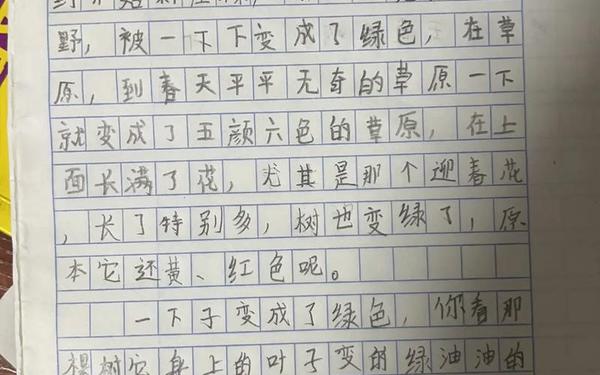 野，被一下下变成了绿色，在草
原，到春天平平无奇的草原一下
就变成了五颜六色的草原，在上
面长满了花，尤其是那个迎春花
，长了特别多，树也变绿了，原
本它还黄、红色呢。
一下子变成了绿色，你看那
棵树它身上的叶子变的绿油油的